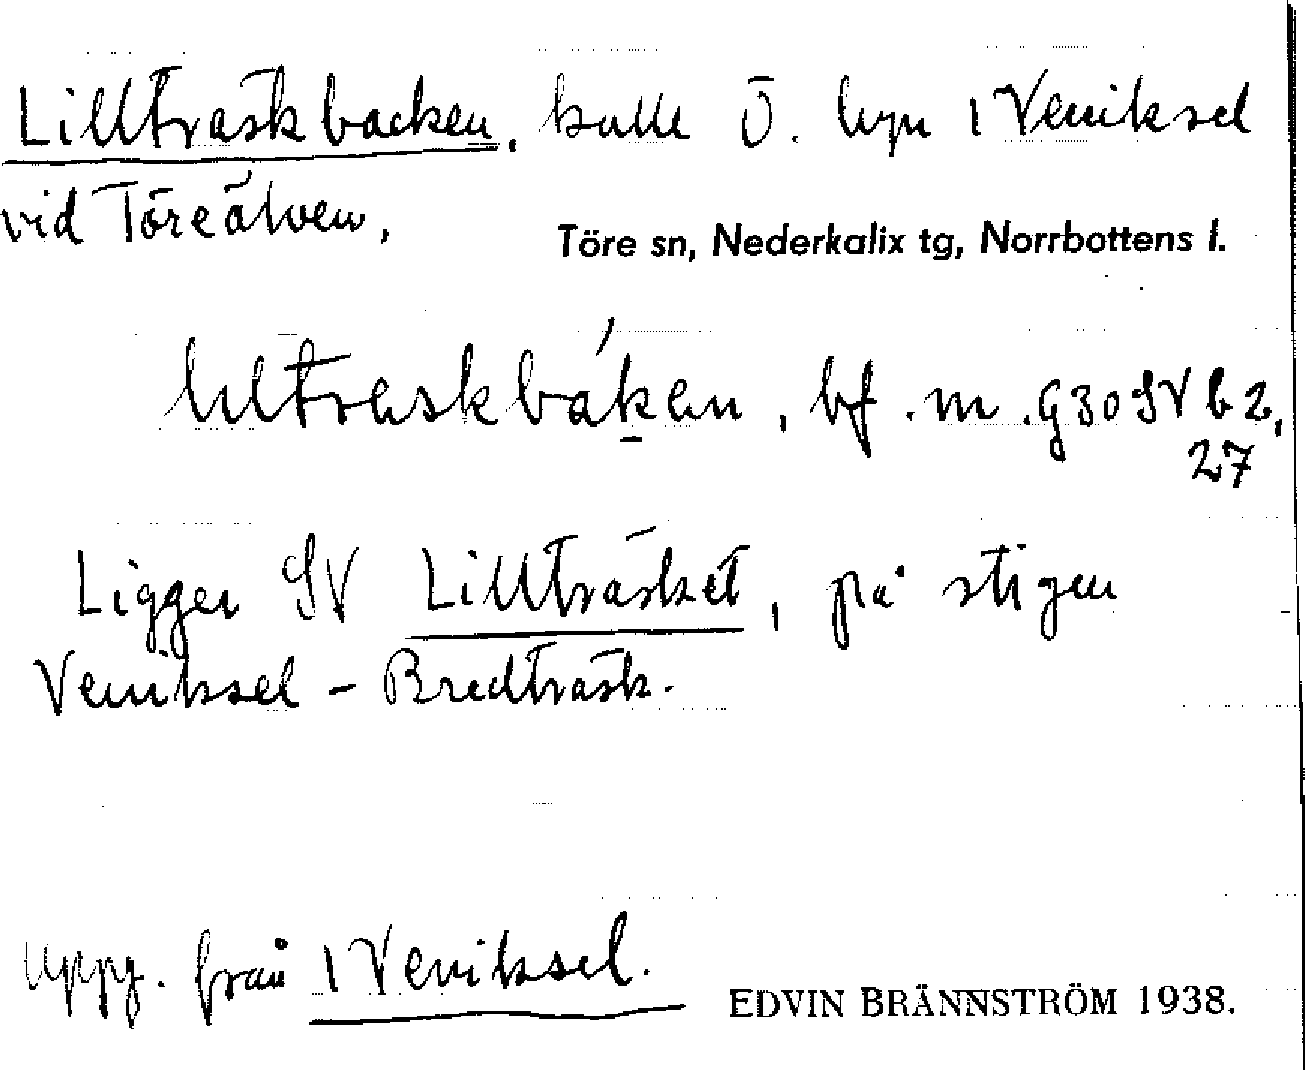 Lillträskbacken, kulle Ö. byn 1 Veniksel
vid Töreälven,
Töre sn, Nederkalix tg, Norrbottens l.
bf. m. G30SVb2,
27
Ligger SV Lillträsket, på stigen
Veniksel - Bredträsk.
Uppg. från 1 Veniksel.
EDVIN BRÄNNSTRÖM 1938.